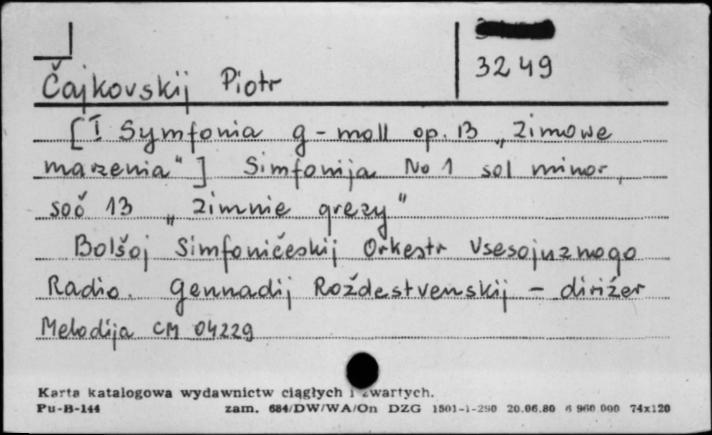 3249
Čajkovskij Piotr
[I Symfonia g-moll op. 13 „Zimowe
marzenia"] Simfonija No 1 sol minor,
soč 13 „Zimnie grezy"
Bolšoj Simfoničeskij Orkestr Vsesojuznogo
Radio. Gennadij Roždestvenskij - dirižer
Melodija CM 04229
Karta katalogowa wydawnictw ciągłych i zwartych.
Pu-B-144 zam. 684/DW/WA/On DZG 1501-1-250 20.06.80 6 960 000 74x120